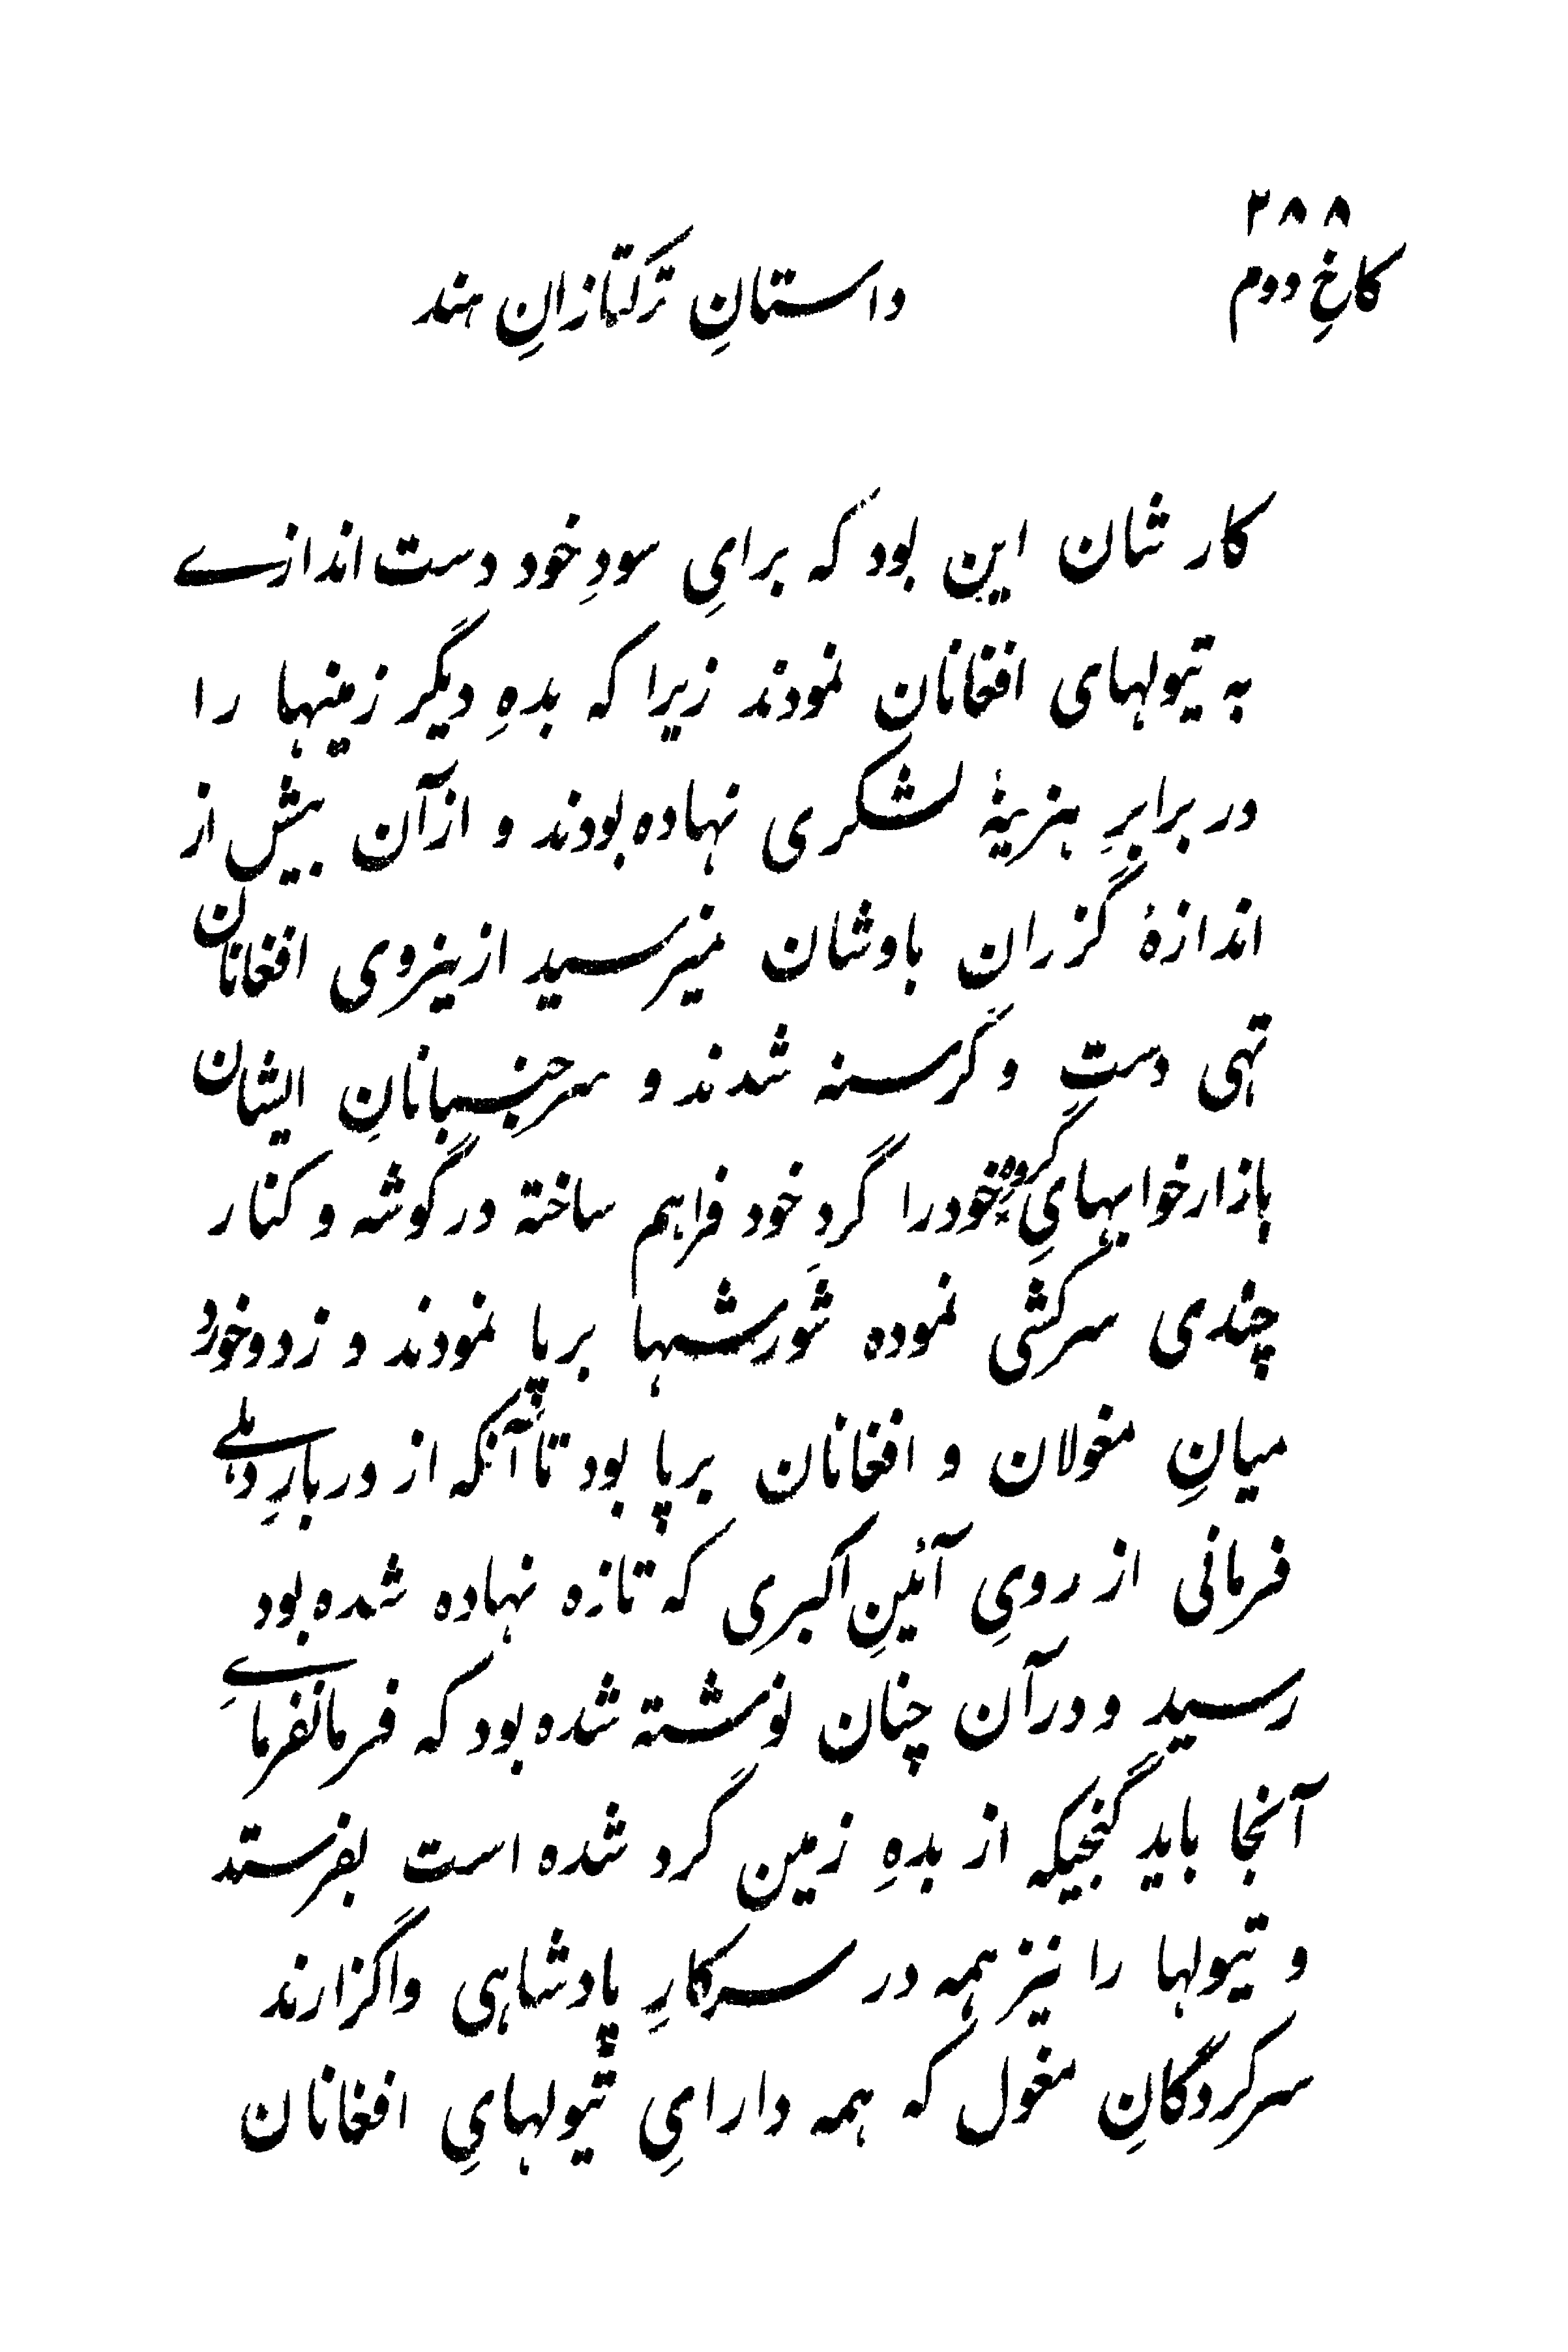 ۲۸۸
کاخِ دوم
داستانِ ترکتازانِ هند
کار شان این بود که برایِ سودِ خود دست اندازے
به تیولهای افغانان نمودند زیرا که بدهِ دیگر زمینها را
در برابرِ هزینۀ لشکری نهاده بودند و ازآن بیش از
اندازۀ گزران باوشان نمیرسید از نیروی افغانان
تهی دست و گرسنه شدند و سرجنبانانِ ایشان
بازارخوابهایِ گروهِ خودرا گردِ خود فراهم ساخته در گوشه و کنار
چندی سرکشی نموده شورشها برپا نمودند و زدوخورد
میانِ مغولان و افغانان برپا بود تا آنکه از دربارِ دہلی
فرمانی از رویِ آئینِ اکبریِ که تازه نهاده شده بود
رسید و درآن چنان نوشته شده بود که فرمانفرمایِ
آنجا باید گنجیکه از بدهِ زمین گرد شده است بفرستد
و تیولها را نیز همه در سرکارِ پادشاهی واگزارند
سرکردگانِ مغول که همه دارایِ تیولهایِ افغانان